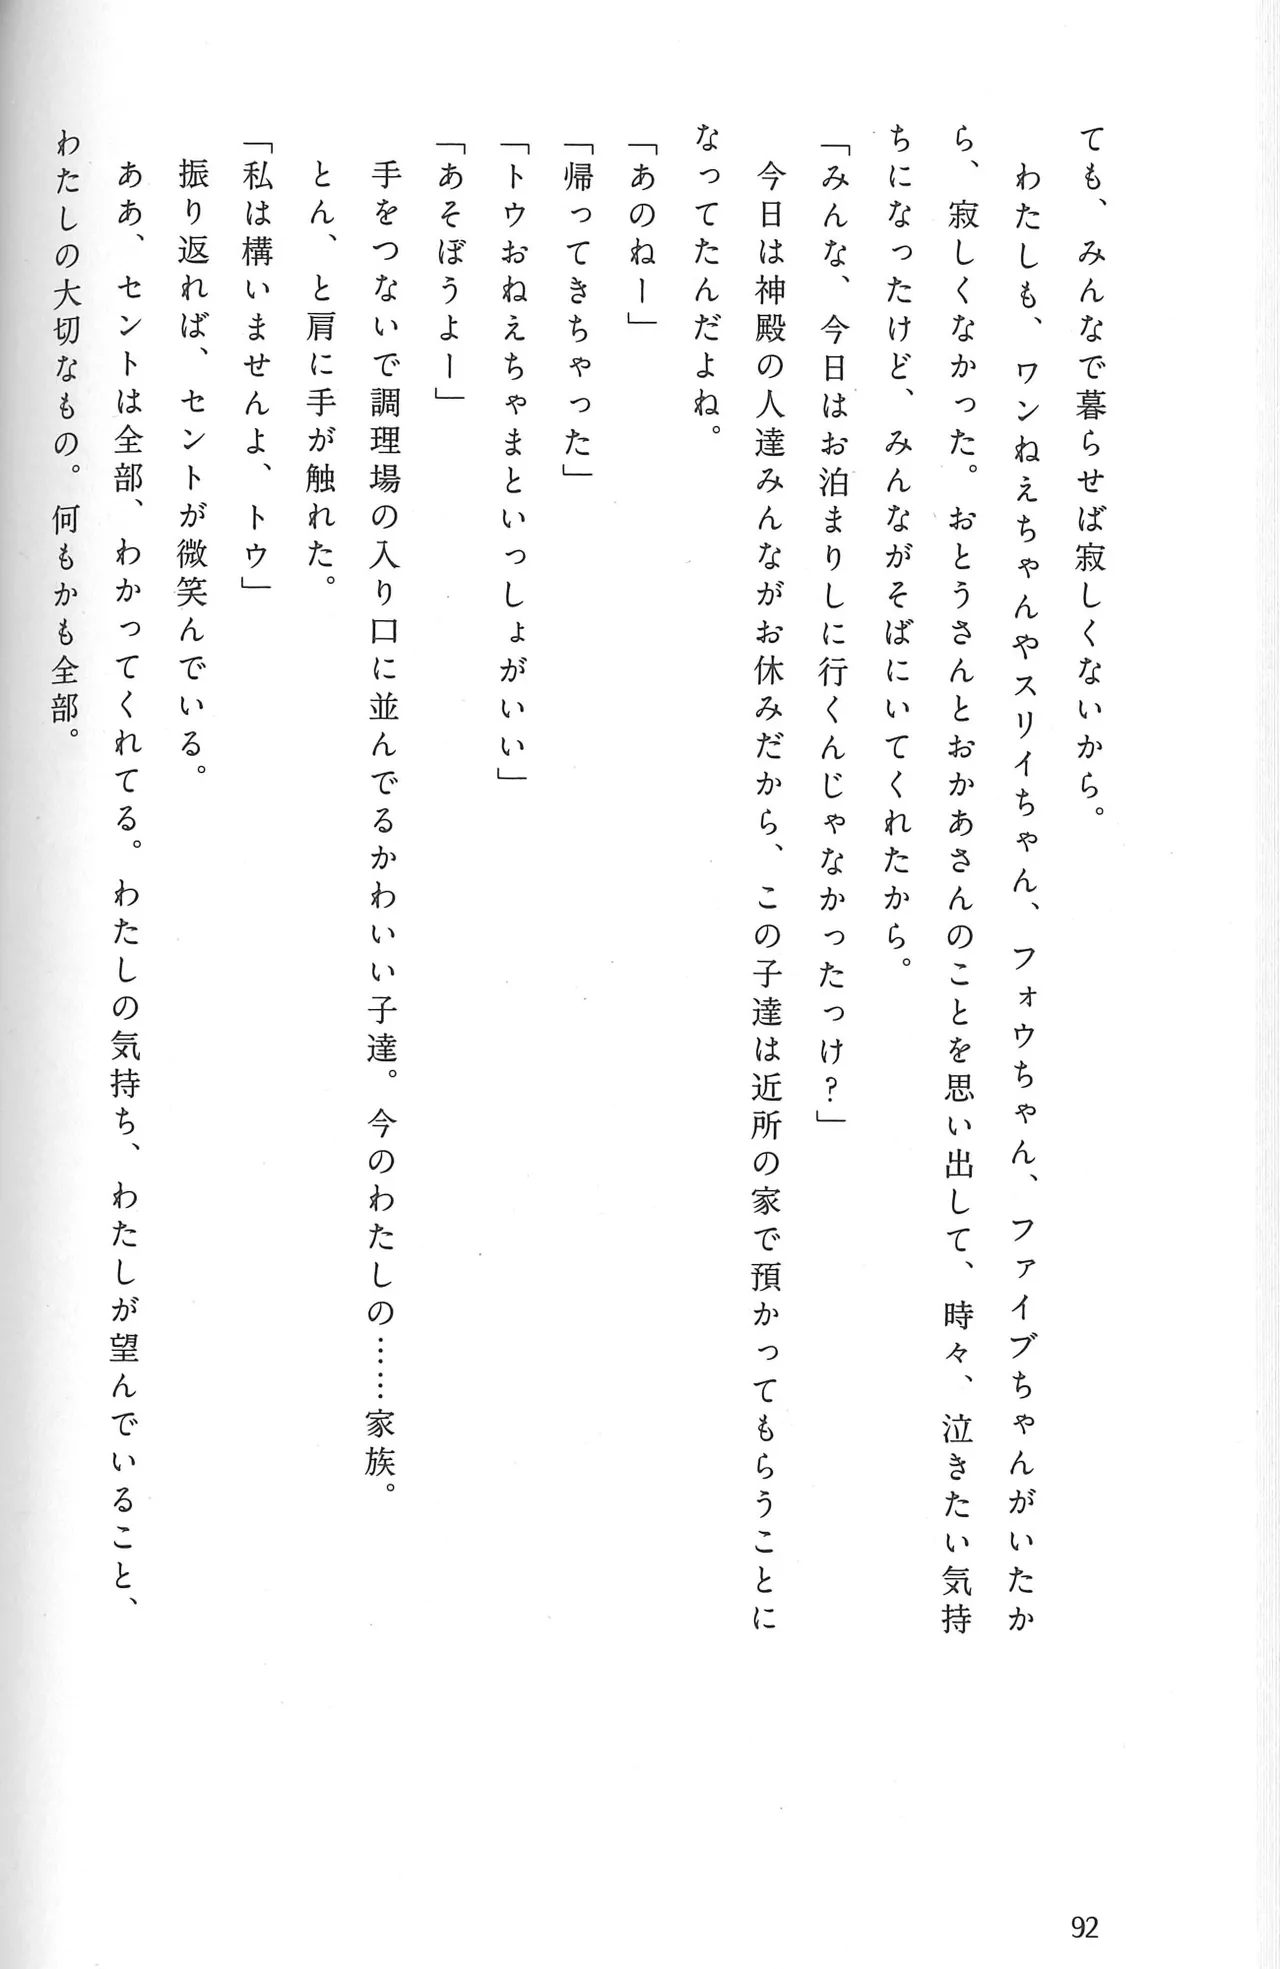 ても、みんなで暮らせば寂しくないから。
わたしも、ワンねえちゃんやスリイちゃん、フォウちゃん、ファイブちゃんがいたか
ら、寂しくなかった。おとうさんとおかあさんのことを思い出して、時々、泣きたい気持
ちになったけど、みんながそばにいてくれたから。
「みんな、今日はお泊まりしに行くんじゃなかったっけ?」
今日は神殿の人達みんながお休みだから、この子達は近所の家で預かってもらうことに
なってたんだよね。
「あのねー」
「帰ってきちゃった」
「トウおねえちゃまといっしょがいい」
「あそぼうよー」
手をつないで調理場の入り口に並んでるかわいい子達。今のわたしの……家族。
とん、と肩に手が触れた。
「私は構いませんよ、トウ」
振り返れば、セントが微笑んでいる。
ああ、セントは全部、わかってくれてる。わたしの気持ち、わたしが望んでいること、
わたしの大切なもの。何もかも全部。
92